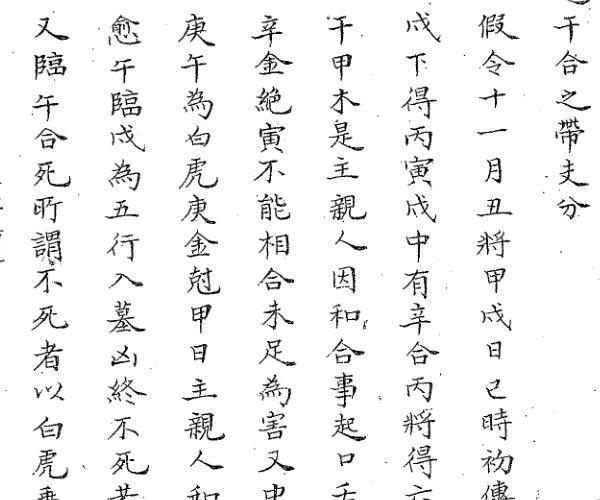 干合之帶支分
假令十一月丑將甲戍日已時初傳
戍下得丙寅戍中有辛合丙將得六
干甲木是主親人因和合事起口舌
辛金絕寅不能相合未足為害又申
庚午為白虎庚金尅甲日主親人和
愈午臨戍為五行入墓凶終不死若
又臨午合死所謂不死者以白虎乗